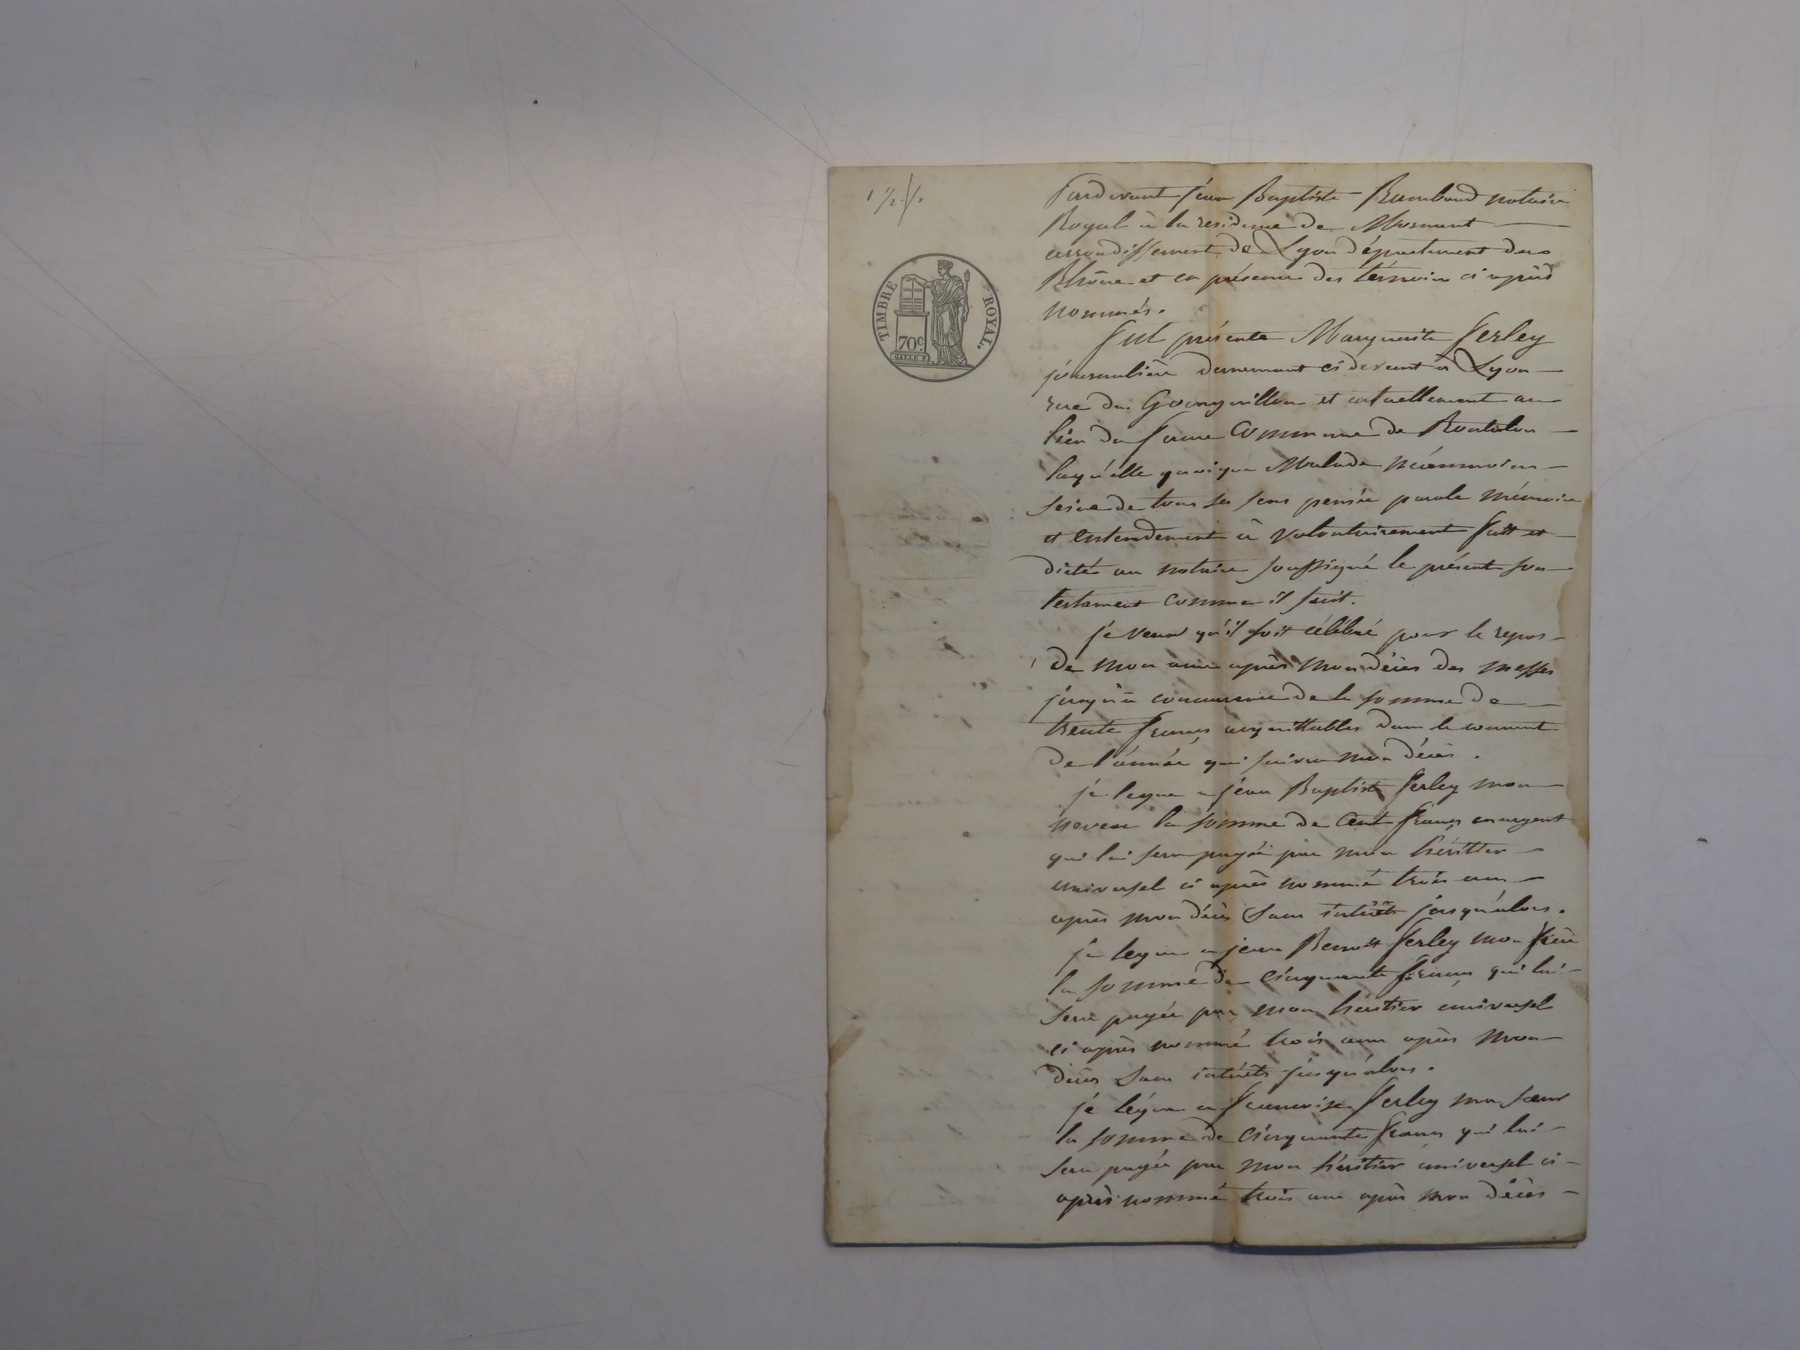 TIMBRE ROYAL.
70c
Pardevant Jéan Baptiste Rambaud notaire
Royal à la residence de Mornant
arrondissement de Lyon département du
Rhône et en présence des témoins ci après
nommés.
fut présente Marguerite Ferley
journalière demeurant ci devant à Lyon
rue du Gourguillon et actuellement au
lieu du commune de Rontalon
laquélle quoique Malade néanmoins
saine de tous ses sens pensée parole mémoire
et entendement à volontairement fait et
dicté au notaire soussigné le présent son
testament comme il suit.
je veux qu'il soit célébré pour le repos
de mon ame après mon décès des messes
jusqu'à concurrence de la somme de
trente francs acquittables dans le courant
de l'année qui suivra mon décès.
je legue a jéan Baptiste ferley mon
neveu la somme de Cent francs en argent
qui lui sera payée par mon héritier
universel ci après nommé trois ans
après mon décès sans intérêts jusqu'alors.
je legue a jean Benoit ferley mon frère
la somme de cinquante francs qui lui
sera payée par mon héritier universel
ci après nommé trois ans après mon
décès sans intérêts jusqu'alors.
je légue a françoise ferley ma sœur
la somme de cinquante francs qui lui
sera payée par mon héritier universel ci
après nommé trois ans après mon décès